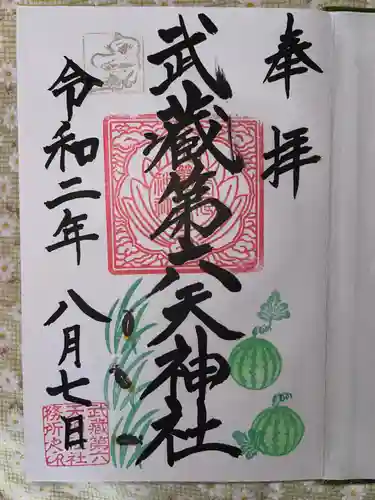 奉拝
武蔵第六天神社
令和二年八月七日
武蔵第六
天神社